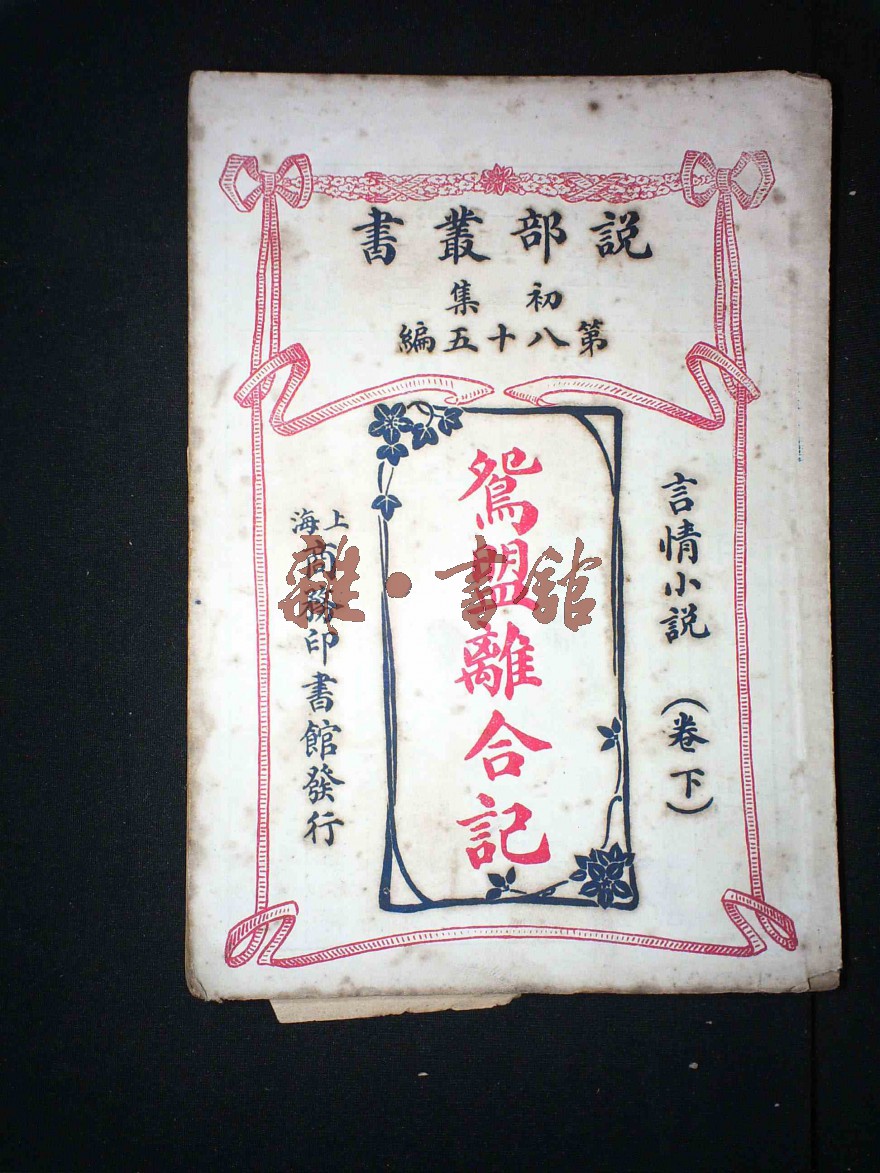 説部叢書
初集
第八十五編
言情小説 (卷下)
鴛盟離合記
上海商務印書館發行
雜·書館